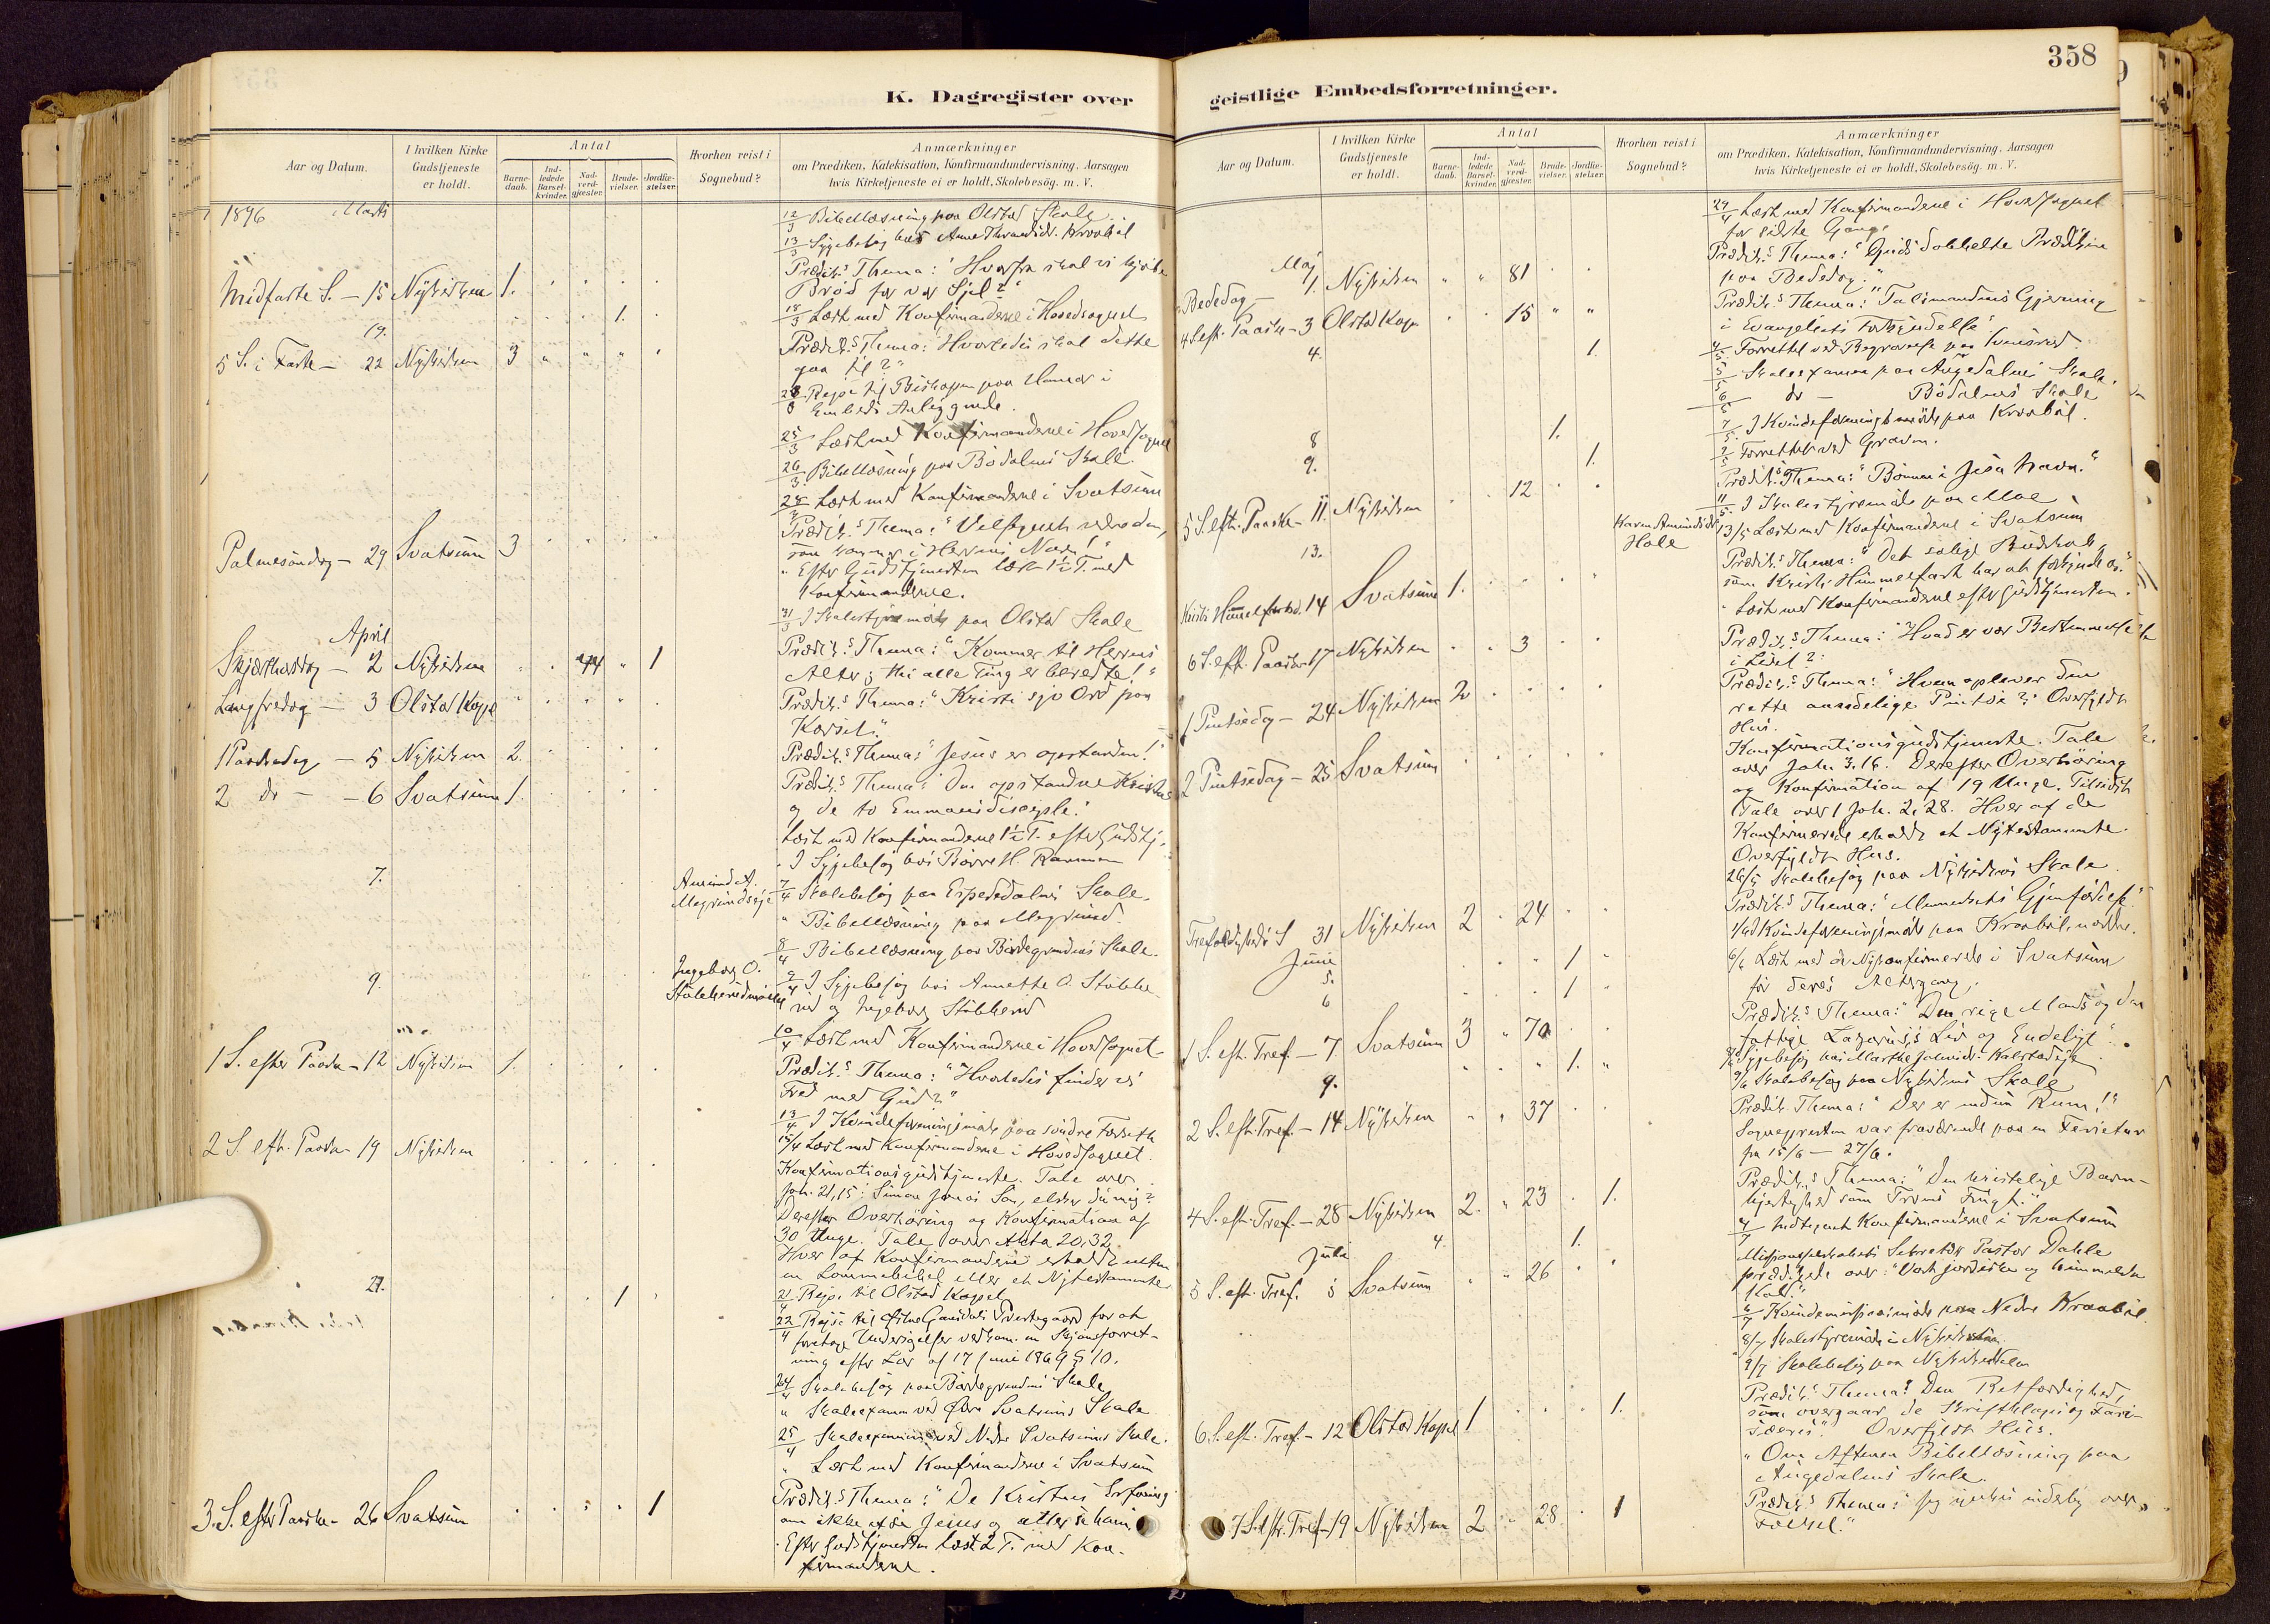 K. Dagregister over
Aar og Datum.
I hvilken Kirke
Gudstjeneste
er holdt.
Antal
Barne-
daab.
Ind-
ledede
Barsel-
kvinder.
Nad-
verd-
gjæster.
Brude-
vielser.
Jordfæ-
stelser.
Hvorhen reist i
Sognebud?
Anmærkninger
om Prædiken, Katekisation, Konfirmandundervisning, Aarsagen
hvis Kirketjeneste ei er holdt, Skolebesög, m. V.
1896 Marts
12/3 Bibellæsning paa Olstad Skole
13/3 Sygebesøg hos Anne Kraabøl
Midfaste S. - 15 Nykirken 1.
Prædik.s Thema: "Hvorfra skal vi kjøbe
Brød for vor Sjel?"
19. 1.
18/3 Læst med Konfirmanderne i Hovedsognet
5 S. i Faste - 22 Nykirken 3
Prædik.s Thema: "Hvorledes skal dette
gaa til?"
23/3 Rejse til Biskoppen paa Hamar i
Embeds Anliggende.
25/3 Læst med Konfirmanderne i Hovedsognet
26/3 Bibellæsning paa Bødalens Skole.
28/3 Læst med Konfirmanderne i Svatsum
Palmesøndag - 29 Svatsum 3
Prædik.s Thema: "Velsignet være den,
som kommer i Herrens Navn!"
" Efter Gudstjenesten læst 1½ T. med
Konfirmanderne.
31/3 I Skolestyremøde paa Olstad Skole
April
Skjærthorsdag - 2 Nykirken 44 1
Prædik.s Thema: "Kommer til Herrens
Alter; thi alle Ting er beredte!"
Langfredag - 3 Olstad Kapel
Prædik.s Thema: "Kristi syv Ord paa
Korset."
1 Paaskedag - 5 Nykirken 2.
Prædik.s Thema: "Jesus er opstanden!"
2 do - - 6 Svatsum 1.
Prædik.s Thema: Den opstandne Kristus
og de to Emmausdisciple.
Læst med Konfirmanderne 1½ T. efter Gudstj.
I Sygebesøg hos Børre H. Rammen
7. Amund A.
7/4 Skolebesøg paa Espedalens Skole.
" Bibellæsning paa Megrund.
8/4 Bibellæsning paa Bødegrendens Skole.
9. Ingeborg O.
9/4 I Sygebesøg hos Annette O. Stubbe-
rud og Ingeborg Stubberud
10/4 Læst med Konfirmanderne i Hovedsognet
1 S. efter Paaske - 12 Nykirken 1.
Prædik.s Thema: "Hvorledes finder vi
Fred med Gud?"
13/4 I Kvindeforeningsmøde paa søndre Forseth
15/4 Læst med Konfirmanderne i Hovedsognet.
2 S. eft. Paaske 19 Nykirken
Konfirmationsgudstjeneste. Tale over
Joh. 21,15: Simon Jonas Søn, elsker du mig?
Derefter Overhøring og Konfirmation af
30 Unge. Tale over Acta 20,32.
Hver af Konfirmanderne erholdt enten
en Lommebibel eller et Nytestamente
21. 1
21/4 Rejse til Olstad Kapel
22/4 Rejse til Østre Gausdals Prestegaard for at
foretage Undersøgelser vedkom. en Skjønsforret-
ning efter Lov af 17 Juni 1869 § 10.
24/4 Skolebesøg paa Bødegrendens Skole
" Skoleexamen ved Øvre Svatsums Skole
25/4 Skoleexamen ved Nedre Svatsums Skole.
" Læst med Konfirmanderne i Svatsum
3. S. efter Paaske - 26 Svatsum 1
Prædik.s Thema: "De Kristnes Erfaring
om ikke at se Jesus og atter se ham."
. Efter Gudstjenesten læst 2 T. med Kon-
firmanderne.
358
geistlige Embedsforretninger.
Aar og Datum.
I hvilken Kirke
Gudstjeneste
er holdt.
Antal
Barne-
daab.
Ind-
ledede
Barsel-
kvinder.
Nad-
verd-
gjæster.
Brude-
vielser.
Jordfæ-
stelser.
Hvorhen reist i
Sognebud?
Anmærkninger
om Prædiken, Katekisation, Konfirmandundervisning, Aarsagen
hvis Kirketjeneste ei er holdt, Skolebesög, m. V.
29/4 Læst med Konfirmanderne i Hovedsognet
for sidste Gang.
Maj
Bededag - 1. Nykirken 81
Prædik.s Thema: "Guds dobbelte Prædiken
paa Bededag."
4 S. eft. Paaske - 3 Olstad Kap. 15
Prædik.s Thema: "Talsmandens Gjerning
i Evangeliets Forkyndelse."
4. 1.
4/5 Forrettet ved Begravelse paa
5/5 Skoleexamen paa Augedalens Skole.
6/5 do - Bødalens Skole
7/5 I Kvindeforeningsmøde paa Kraabøl.
8 1.
9. 1.
9/5 Forrettet ved Graven.
5 S. eft. Paaske - 11. Nykirken 12
Prædik.s Thema: "Bønnen i Jesu Navn."
11/5 I Skolestyremøde paa Moe
13. Karen Amundsdtr. Hole
13/5 Læst med Konfirmanderne i Svatsum
Kristi Himmelfartsd. 14 Svatsum 1.
Prædik.s Thema: "Det salige Budskab,
som Kristi Himmelfart har at forkynde os."
" Læst med Konfirmanderne efter Gudstjenesten.
6 S. eft. Paaske 17 Nykirken 3
Prædik.s Thema: "Hvad er vor Bestemmelse
i Livet?"
1 Pintsedag - 24 Nykirken 2
Prædik.s Thema: "Hvem oplever den
rette aandelige Pintse?" Overfyldt
Hus.
2 Pintsedag - 25 Svatsum
Konfirmationsgudstjeneste. Tale
over Joh. 3,16. Derefter Overhøring
og Konfirmation af 19 Unge. Tilsidst
Tale over 1 Joh. 2,28. Hver af de
Konfirmerede erholdt et Nytestamente.
Overfyldt Hus.
26/5 Skolebesøg paa Nykirkens Skole
Trefoldigheds S 31 Nykirken 2 24
Prædik.s Thema: "Menneskets Gjenfødelse."
1/6 I Kvindeforeningsmøde paa Kraabøl, nordre.
Juni
5. 1
6/6 Læst med de Nykonfirmerede i Svatsum
før deres Altergang.
6 1
1 S. eft. Tref. - 7 Svatsum 3 70
Prædik.s Thema: "Den rige Mands og den
fattige Lazarus's Liv og Endeligt."
9. 1.
9/6 Skolebesøg paa Nykirkens Skole
2 S. eft. Tref. - 14 Nykirken 37
Prædik. Thema: "Der er endnu Rum!"
Sognepresten var fraværende paa en Ferietur
fra 15/6 - 27/6.
4 S. eft. Tref. - 28 Nykirken 2. 23 1.
Prædik.s Thema: "Den kristelige Barm-
hjertighed som Troens Frugt."
Juli 4. 1.
4/7 Indtegnet Konfirmanderne i Svatsum
5 S. eft. Tref. 5 Svatsum 26
Missionsselskabets Sekretær Pastor Dahle
prædikede over: "Vort jordiske og himmelske
Kald."
6/7 Kvindemissionsmøde paa Nedre Kraabøl.
8/7 Skolestyremøde i Nykirken
9/7 Skolebesøg paa Nykirkeskolen
6. S. eft. Tref. - 12 Olstad Kapel 1 1.
Prædik.s Thema: Den Retfærdighed,
som overgaar de Skriftkloges og Fari-
sæeres". Overfyldt Hus.
" Om Aftenen Bibellæsning paa
Augedalens Skole.
7 S. eft. Tref - 19 Nykirken 2 28 1
Prædik.s Thema: "Jeg ynkes inderlig over
Folket."